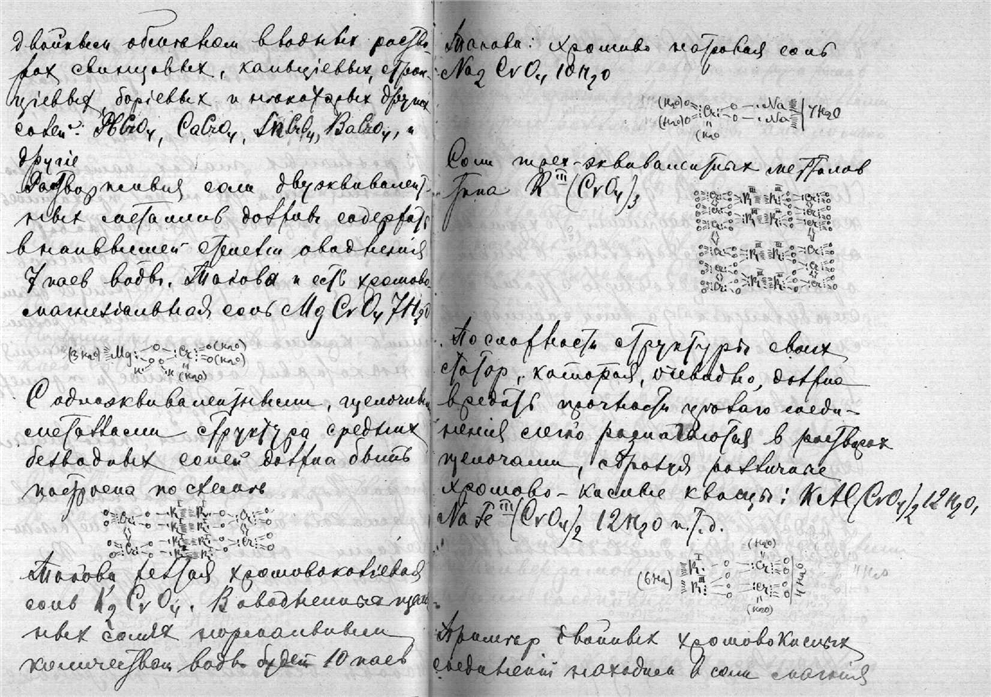 двойным обменом в водных раство-
рах свинцовых, кальціевых, строн-
ціевых, боріевых и некоторых других
солей: PbCrO4, CaCrO4, SrCrO4, BaCrO4, и
другіе
Растворживыя соли двухэквивалент-
ных металлов должны содержать
в наивысшей степени оводненія
7 паев воды. Такова и есть хромово
магнезіальная соль MgCrO4 7H2O
(3H2O) Mg O O Cr O(H2O) O(H2O) H H (H2O)
С одноэквивалентными, щелочными
металлами структура средних
безводных солей должна быть
построена по схеме
Такова желтая хромовокаліевая
соль K2CrO4. В оводненных
ных солях нормальным
количеством воды будет 10 паев
Такова: хромово натровая соль
Na2CrO4 10H2O
(H2O)O Cr O Na 4H2O
(H2O)O O Na
(H2O)
Соли трех-эквивалентных металлов
типа R III (CrO4)3
По сложности структуры своих
которая, очевидно, должна
вредить прочности ихового соеди-
нения легко разлагаются в растворах
щелочами, образуя различные
хромово-кислые квасцы: KAl(CrO4)2 12H2O,
NaFe III (CrO4)2 12H2O и.т.д.
(H2O)
(6H2) R I O O Cr O O
R III O O Cr O O 4H2O
(H2O)
Пример двойных хромовокислых
соединеній находим в соли магнія